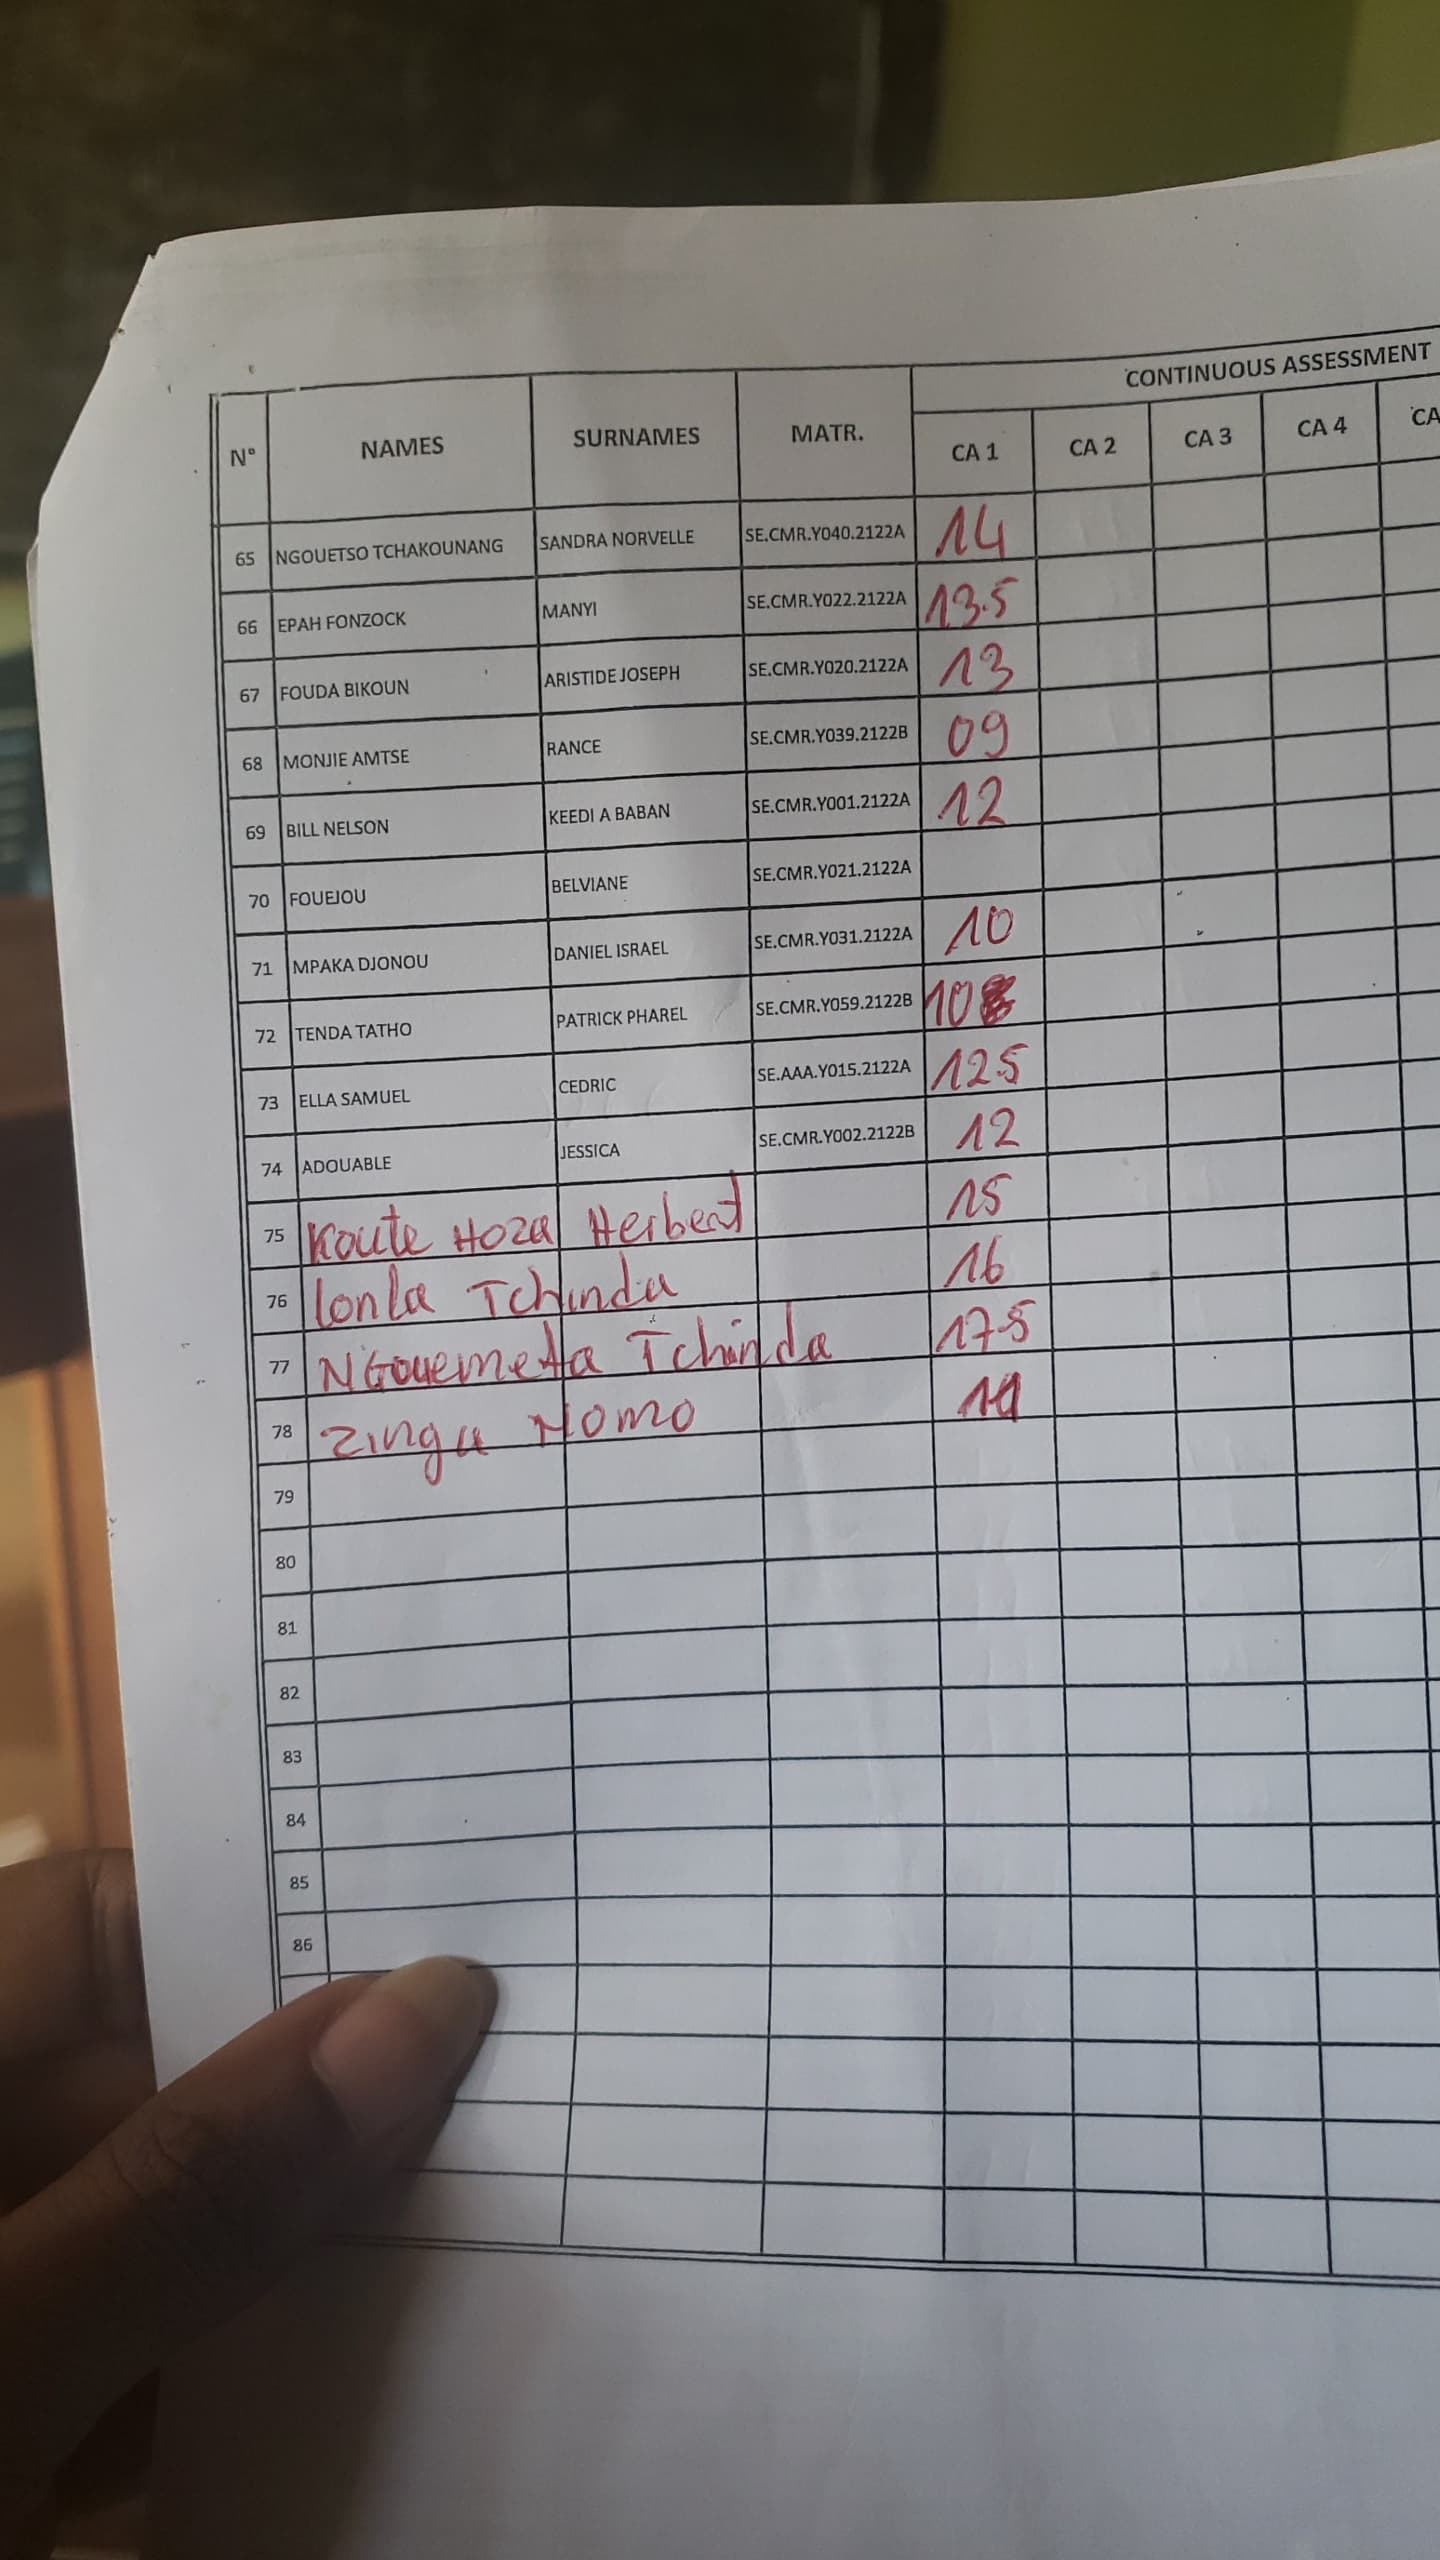 CONTINUOUS ASSESSMENT
N° NAMES SURNAMES MATR. CA 1 CA 2 CA 3 CA 4 CA
65 NGOUETSO TCHAKOUNANG SANDRA NORVELLE SE.CMR.Y040.2122A 14
66 EPAH FONZOCK MANYI SE.CMR.Y022.2122A 13.5
67 FOUDA BIKOUN ARISTIDE JOSEPH SE.CMR.Y020.2122A 13
68 MONJIE AMTSE RANCE SE.CMR.Y039.2122B 09
69 BILL NELSON KEEDI A BABAN SE.CMR.Y001.2122A 12
70 FOUEJOU BELVIANE SE.CMR.Y021.2122A
71 MPAKA DJONOU DANIEL ISRAEL SE.CMR.Y031.2122A 10
72 TENDA TATHO PATRICK PHAREL SE.CMR.Y059.2122B 10
73 ELLA SAMUEL CEDRIC SE.AAA.Y015.2122A 12.5
74 ADOUABLE JESSICA SE.CMR.Y002.2122B 12
75 Koute Hoza Herbert 15
76 Lonla Tchinda 16
77 NGouemeta Tchinda 17.5
78 Zinga Nomo
79
80
81
82
83
84
85
86